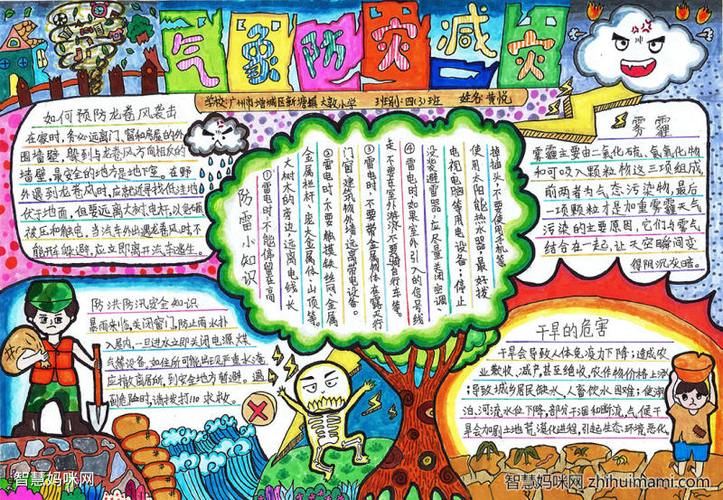 气象防灾减灾
学校:广州市增城区新塘镇大敦小学 班别:四(3)班 姓名:黄悦
如何预防龙卷风袭击
在家时,务必远离门、窗和房屋的外
围墙壁,躲到与龙卷风方向相反的
墙壁,最安全的地方是地下室。在野
外遇到龙卷风时,应就近寻找低洼地
伏于地面,但要远离大树、电杆,以免砸
被压和触电。当汽车外出遇龙卷风时不
能开车躲避,应立即离开汽车逃生。
防雷小知识
①雷电时,不能停留在高
大树木的旁边,远离电线,长
金属栏杆、庞大金属体、山顶等。
②雷电时不要触摸铁丝网、金属
门窗、建筑物外墙,远离带电设备。
③雷电时,不要带金属物体在露天行
走,不要在室外游泳,不要骑自行车等。
④雷电时,如果室外引入的信号线
没安避雷器,应尽量关闭空调、
电视、电脑等用电设备;停止
使用太阳能热水器,最好拔
掉插头,不要使用手机等。
雾霾
雾霾主要由二氧化硫、氮氧化物
和可吸入颗粒物这三项组成,
前两者为气态污染物,最后
一项颗粒才是加重雾霾天气
污染的主要原因,它们与雾气
结合在一起,让天空瞬间变
得阴沉灰暗。
防洪防汛安全知识
暴雨来临,关闭窗门,防止雨水扑
入屋内,一旦进水立即关闭电源、煤
气等设备,如住所可能出现严重水淹
应撤离居所,到安全地方暂避。遇
到危险时,请拨打110求救。
干旱的危害
干旱会导致人体免疫力下降;造成农
业歉收、减产,甚至绝收,农作物价格上涨
;导致城乡居民缺水、人畜饮水困难;使湖
泊、河流水位下降,部分干涸和断流,气候干
旱会加剧土地荒漠化进程,引起生态环境恶化。
智慧妈咪网
智慧妈咪网zhihuimami.com